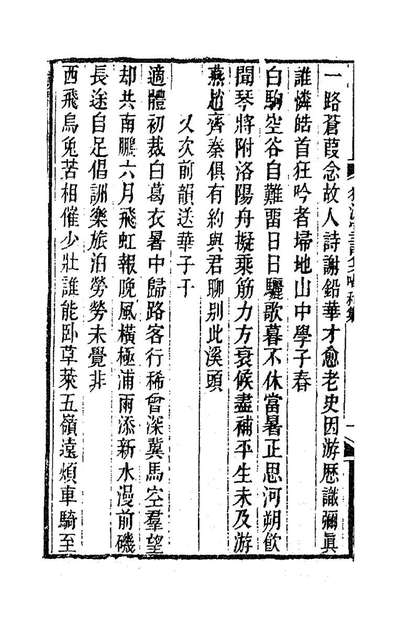 一路蒼葭念故人詩謝鉛華才愈老史因游歷識彌眞
誰憐皓首狂吟者埽地山中學子春
白駒空谷自難畱日日驪歌暮不休當暑正思河朔飲
聞琴將附洛陽舟擬乘筋力方衰候盡補平生未及游
燕趙齊秦俱有約與君聊别此溪頭
又次前韻送華子于
適體初裁白葛衣暑中歸路客行稀曾深冀馬空羣望
却共南鵬六月飛虹報晚風橫極浦雨添新水漫前磯
長途自足倡訓樂旅泊勞勞未覺非
西飛烏兔苦相催少壯誰能卧草萊五嶺遠煩車騎至